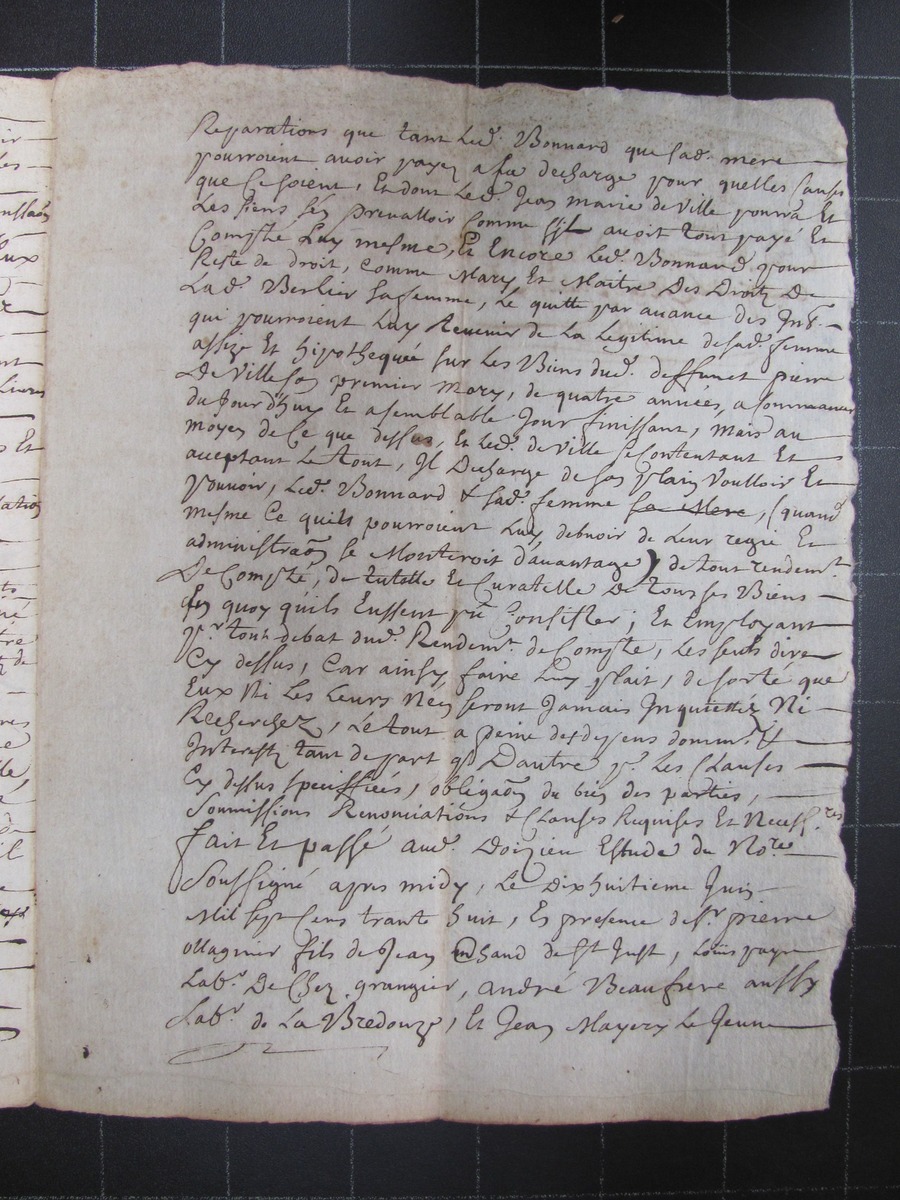 Reparations que tant Led. Bonnard que sad. mere
pourroient auoir payez a sa decharge pour quelles causes
que Ce soient, Et dont Led. Jean marie de Ville pourra Et
Les siens s'en prevalloir Comme s'il auoit tout payé Et
Compté Luy mesme, Et Encore Led. Bonnard pour
Reste de droit, Comme Mary Et Maitre Des Droits De
Lad. Berlier sa femme, Le quitte par auance des Int.
qui pourroient Luy Reuenir de La Legitime de sad. femme
assize Et hipothequée sur Les Biens dud. deffunct pierre
De Ville son premier Mary, de quatre années, a Commancer
du Jourd'huy Et a semblable Jour finissant, Mais au
moyen de Ce que dessus, Et Led. de Ville se Contentant Et
acceptant Le tout, Il Decharge de son plain Voulloir Et
pouvoir, Led. Bonnard & sad. femme sa Mere, (quand
mesme Ce quils pourroient Luy debuoir de Leur regie Et
administraon se Monteroit d'auantage) de tout rendemt.
De Compte, de tutelle Et Curatelle De tous ses Biens
En quoy quils Eussent pu Consister, Et Employant
pr. tout debat dud. Rendemt. de Compte, Les seuls dire
Cy dessus, Car ainsy faire Luy plait, de sorte que
Eux Ni Les Leurs N'en seront Jamais Inquiettéz Ni
Recherchez, Le tout a peine de despens domm. &
Interestz tant de part que Dautre pr. Les Clauses
Cy dessus speciffiées, obligaon du bien des parties,
Soumissions Renonciations & Clauses Requises Et Necess.res
fait Et passé aud. Doizieu Estude du No.re
Soussigné apres midy, Le Dixhuitieme Juin
Mil sept Cens trante huit, En presence de sr. pierre
Magnier fils de Jean mChand de st Just, Loüis payre
Labr. De Chez grangier, andré Beaufrere aussy
Labr. de La Bredouze, Et Jean Mayery Le Jeune